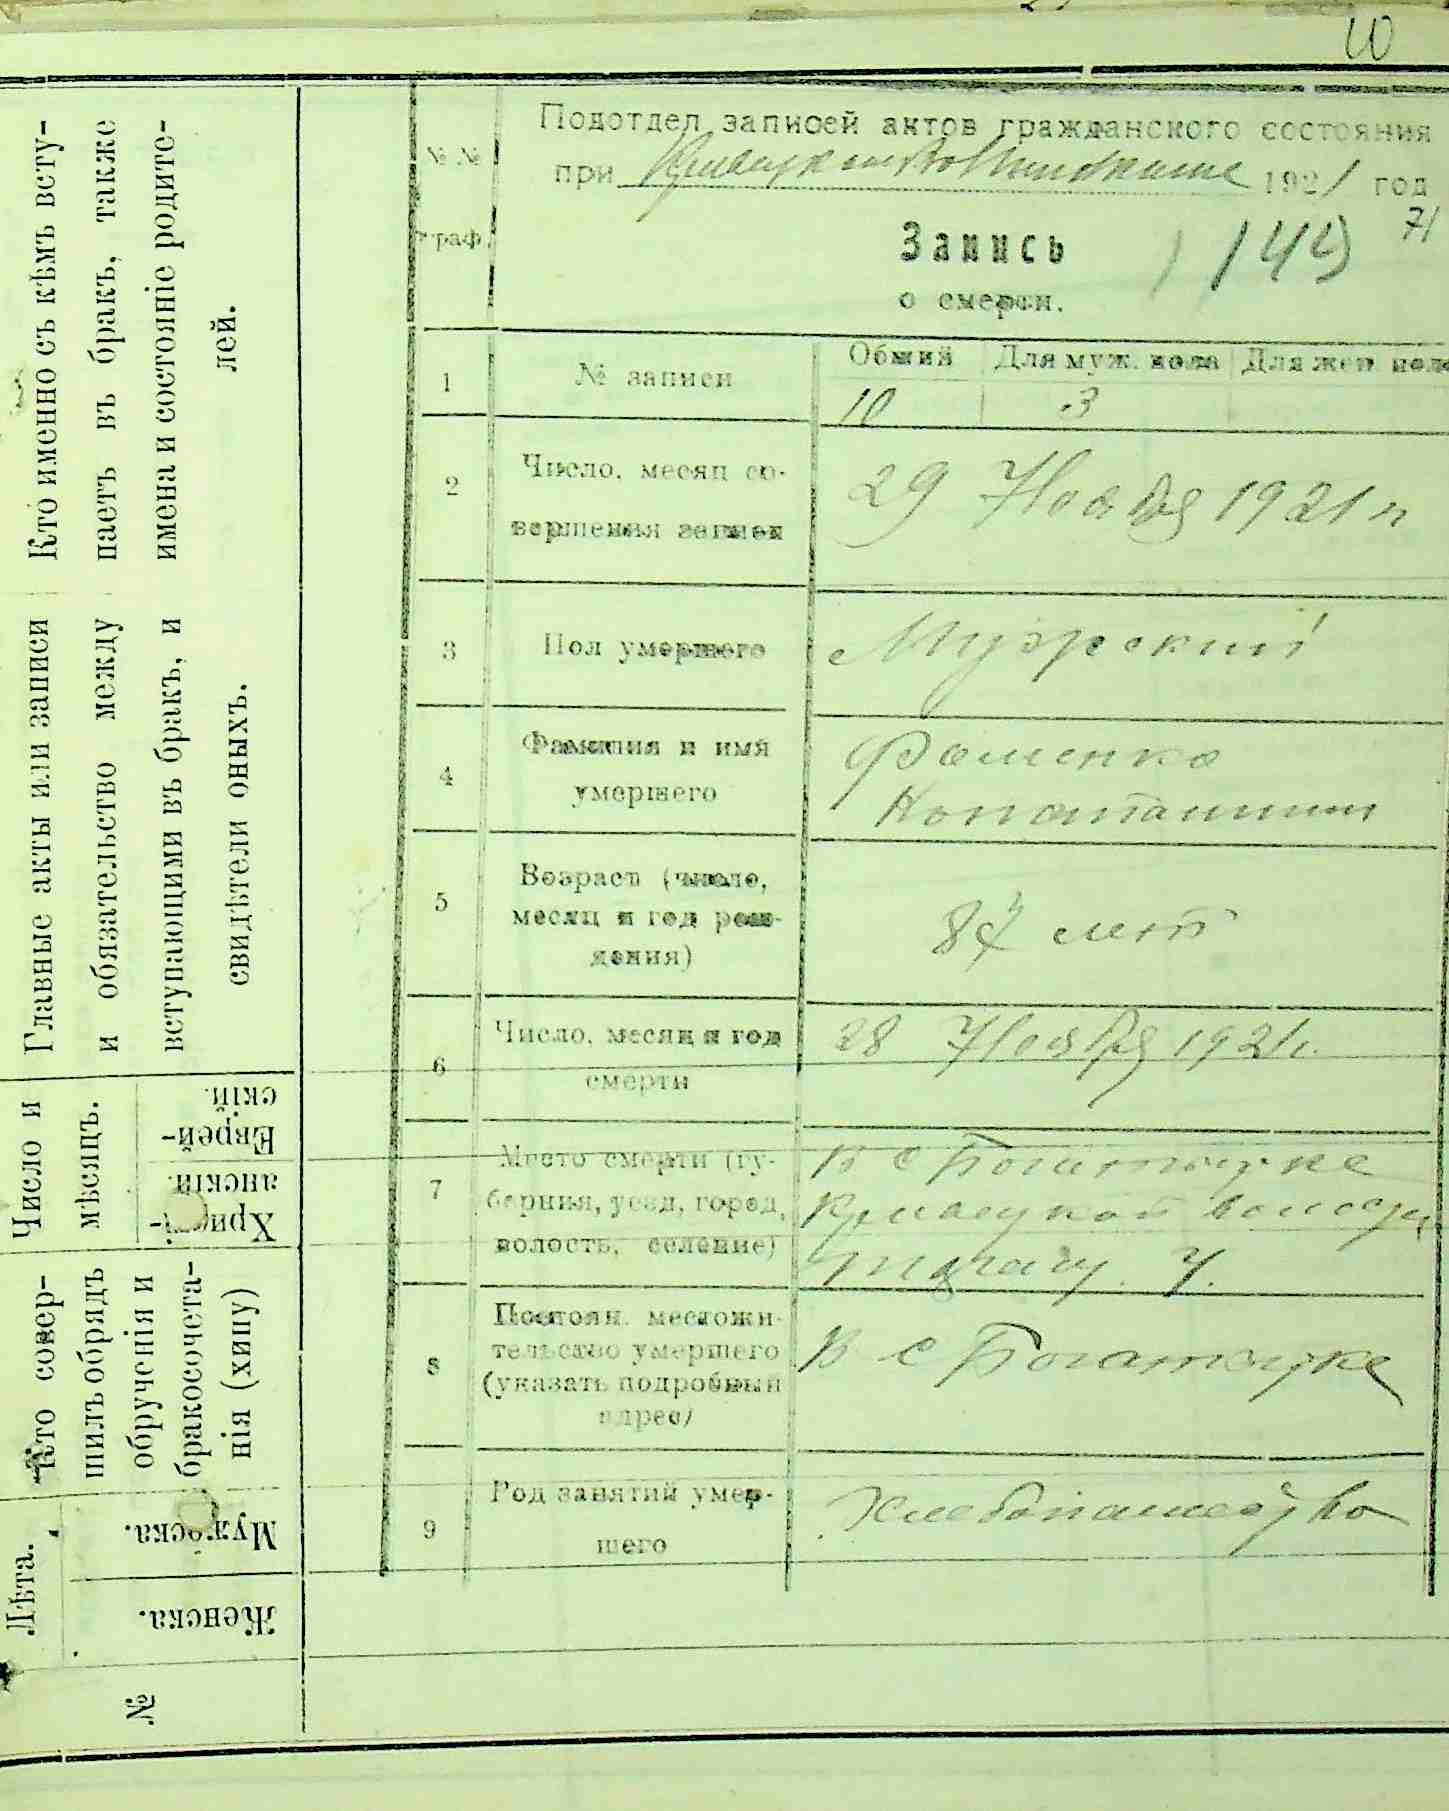 10
Подотдел записей актов гражданского состояния
при Кривецком Волисполкоме 1921 год
71
№ №
граф.
Запись
149
о смерти.
1
№ записи
Общий Для муж. пола Для жен. пола
10 3
2
Число, месяц со-
вершения записи
29 Ноября 1921 г
3
Пол умершего
Мужской
4
Фамилия и имя
умершего
Фоменко
Константин
5
Возраст (число,
месяц и год рож-
дения)
84 лет
6
Число, месяц и год
смерти
28 Ноября 1921 г.
7
Место смерти (гу-
берния, уезд, город,
волость, селение)
В с
волости
у.
8
Постоян. местожи-
тельство умершего
(указать подробный
адрес)
В с
9
Род занятий умер-
шего
Хлебопашество
Кто именно съ кѣмъ всту-
паетъ въ бракъ, также
имена и состоянiе родите-
лей.
Главные акты или записи
и обязательство между
вступающими въ бракъ, и
свидѣтели оныхъ.
Число и
мѣсяцъ.
Еврей-
скiй.
Христi-
анскiй.
Кто совер-
шилъ обрядъ
обрученiя и
бракосочета-
нiя (хипу)
Лѣта.
Мужеска.
Женска.
№